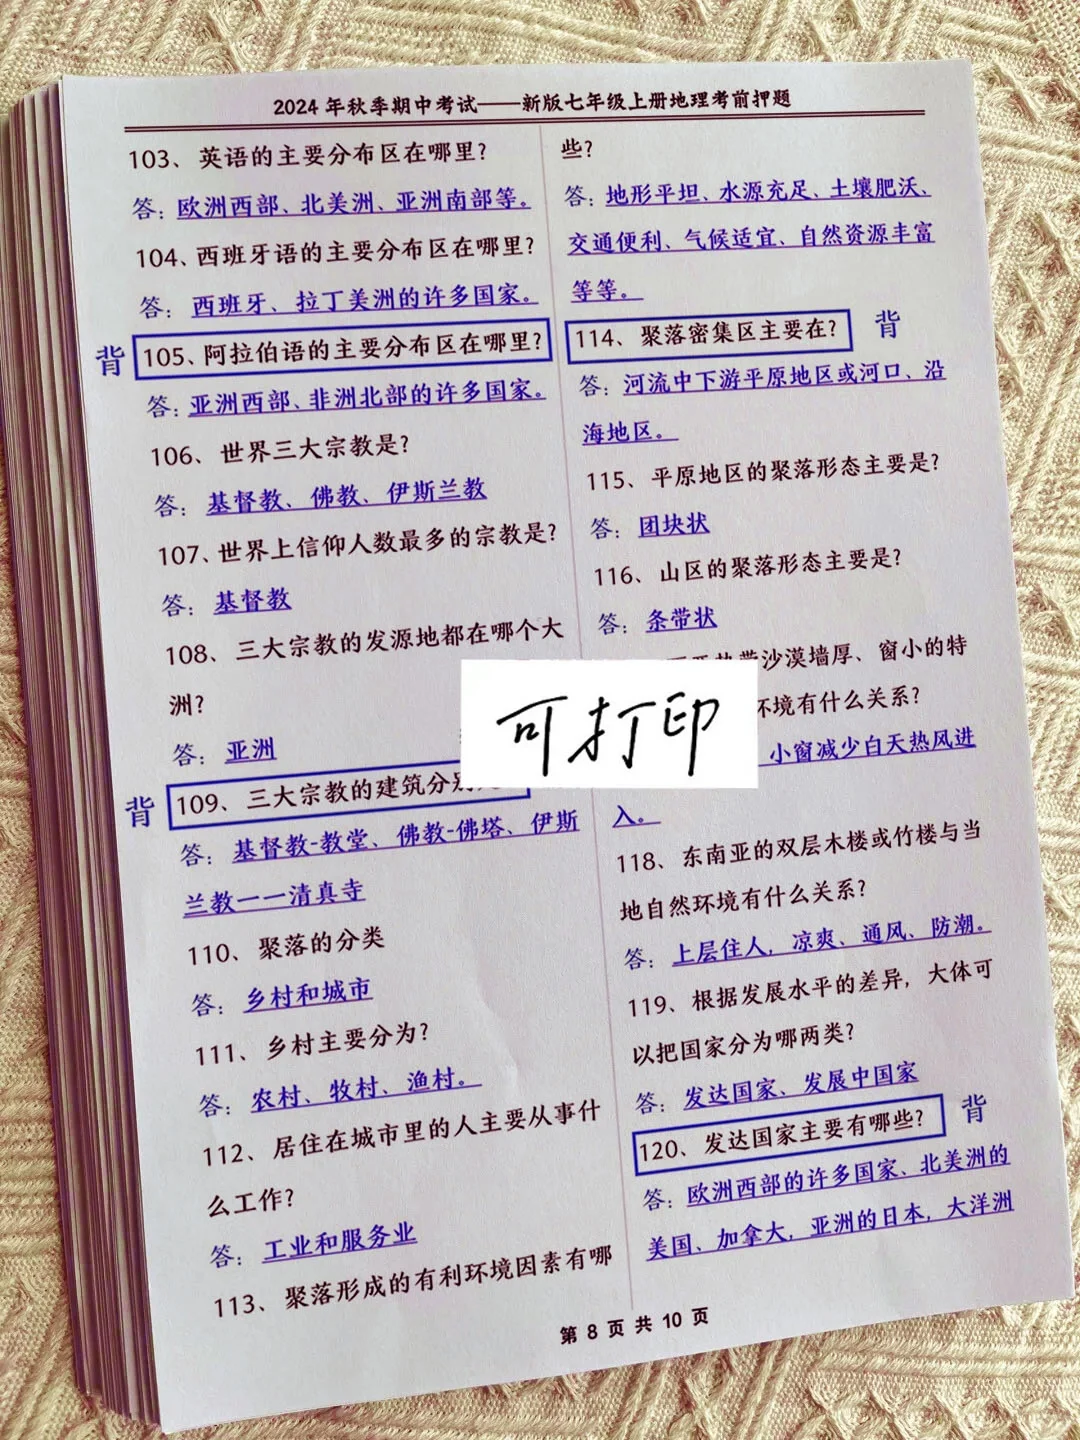 2024 年秋季期中考试——新版七年级上册地理考前押题
103、英语的主要分布区在哪里?
答: 欧洲西部、北美洲、亚洲南部等。
104、西班牙语的主要分布区在哪里?
答: 西班牙、拉丁美洲的许多国家。
背 105、阿拉伯语的主要分布区在哪里?
答: 亚洲西部、非洲北部的许多国家。
106、世界三大宗教是?
答: 基督教、佛教、伊斯兰教
107、世界上信仰人数最多的宗教是?
答: 基督教
108、三大宗教的发源地都在哪个大
洲?
答: 亚洲
背 109、三大宗教的建筑分别
答: 基督教-教堂、佛教-佛塔、伊斯
兰教一一清真寺
110、聚落的分类
答: 乡村和城市
111、乡村主要分为?
答: 农村、牧村、渔村。
112、居住在城市里的人主要从事什
么工作?
答: 工业和服务业
113、聚落形成的有利环境因素有哪
些?
答: 地形平坦、水源充足、土壤肥沃、
交通便利、气候适宜、自然资源丰富
等等。
114、聚落密集区主要在? 背
答: 河流中下游平原地区或河口、沿
海地区。
115、平原地区的聚落形态主要是?
答: 团块状
116、山区的聚落形态主要是?
答: 条带状
沙漠墙厚、窗小的特
环境有什么关系?
小窗减少白天热风进
入。
118、东南亚的双层木楼或竹楼与当
地自然环境有什么关系?
答: 上层住人，凉爽、通风、防潮。
119、根据发展水平的差异，大体可
以把国家分为哪两类?
答: 发达国家、发展中国家
120、发达国家主要有哪些? 背
答: 欧洲西部的许多国家、北美洲的
美国、加拿大，亚洲的日本，大洋洲
可打印
第 8 页 共 10 页